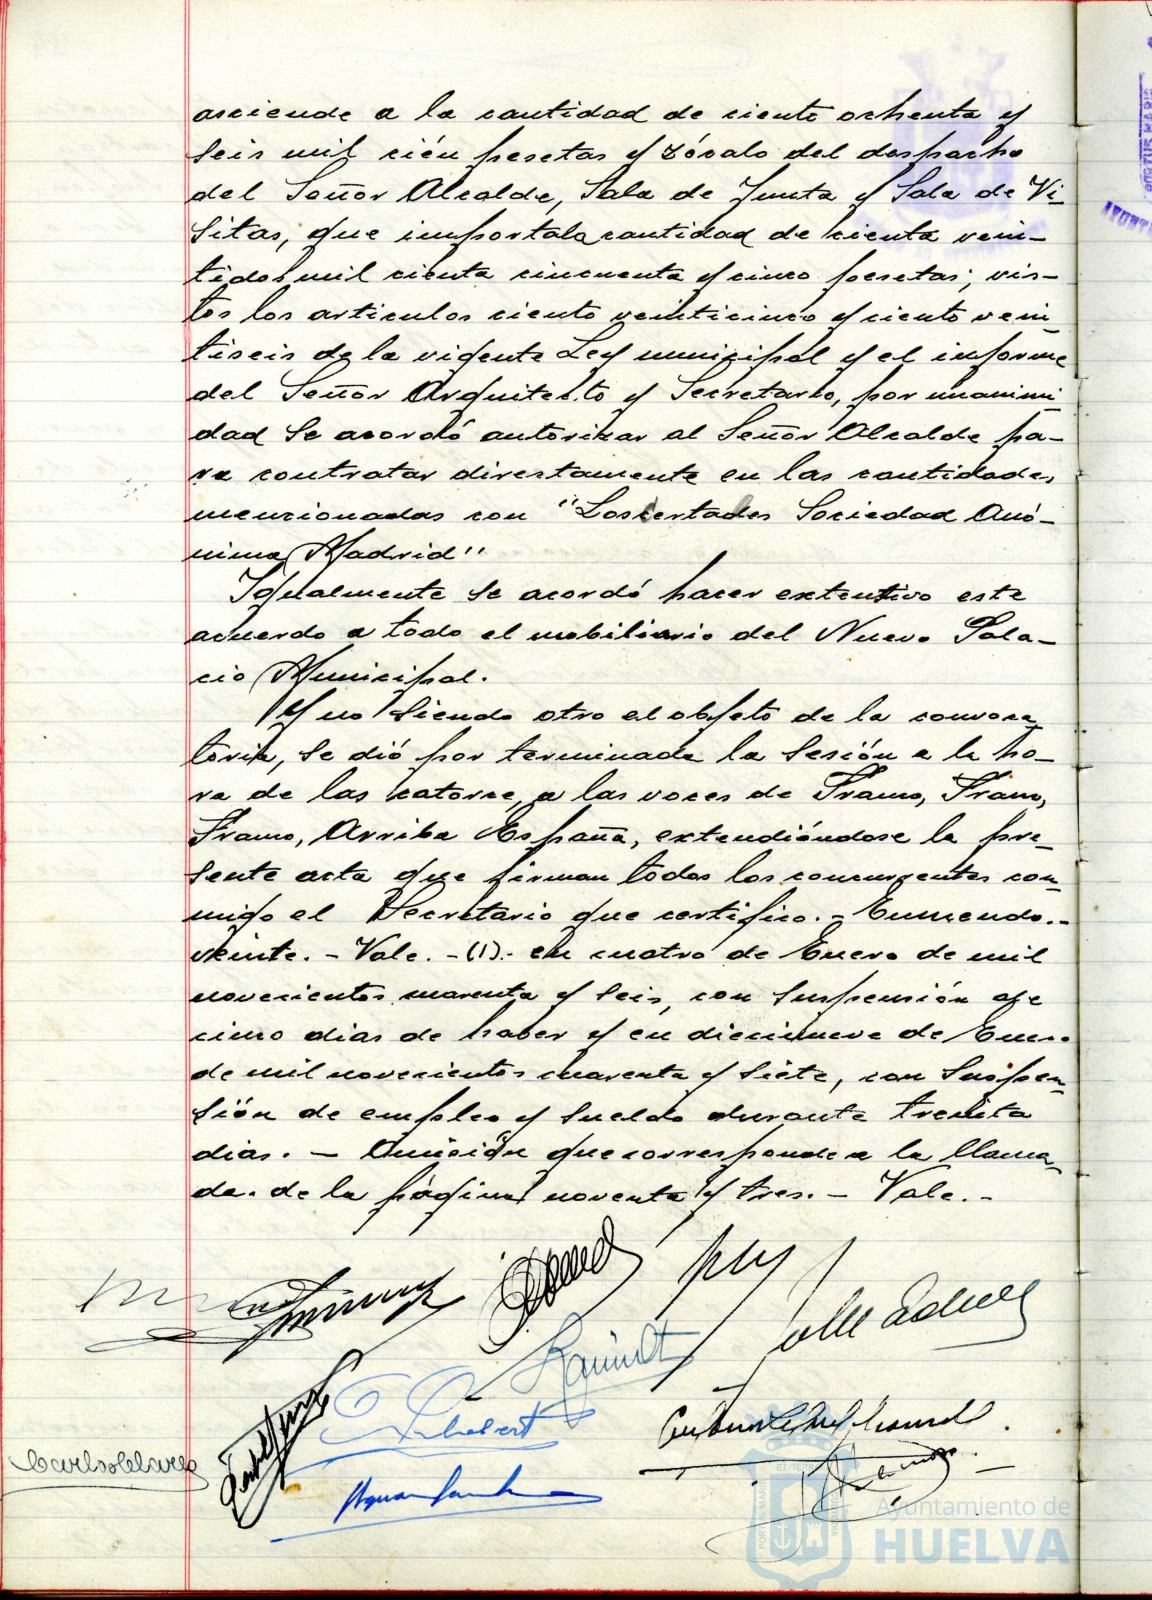 asciende a la cantidad de ciento ochenta y
seis mil cién pesetas y zócalo del despacho
del Señor Alcalde, Sala de Junta y Sala de Vi-
sitas, que importa la cantidad de cienta vein-
tidos mil cienta cincuenta y cinco pesetas; vis-
tos los articulos ciento veinticinco y ciento vein-
tiseis de la vigente Ley municipal y el informe
del Señor Arquitecto y Secretario, por unanimi-
dad se acordó autorizar al Señor Alcalde pa-
ra contratar directamente en las cantidades
mencionadas con "Loscertales Sociedad Anó-
nima Madrid"
Igualmente se acordó hacer extensivo este
acuerdo a todo el mobiliario del Nuevo Pala-
cio Municipal.
Y no siendo otro el objeto de la convoca-
toria, se dió por terminada la sesión a la ho-
ra de las catorce, a las voces de Franco, Franco,
Franco, Arriba España, extendiéndose la pre-
sente acta que firman todos los concurrentes con-
migo el Secretario que certifico. - Enmendo. -
veinte. - Vale. - (1). - en cuatro de Enero de mil
novecientos cuarenta y seis, con suspensión de
cinco dias de haber y en diecinueve de Enero
de mil novecientos cuarenta y siete, con suspen-
sión de empleo y sueldo durante treinta
dias. - Omisión que corresponde a la llama-
da. de la página noventa y tres. - Vale. -
Ayuntamiento de
HUELVA